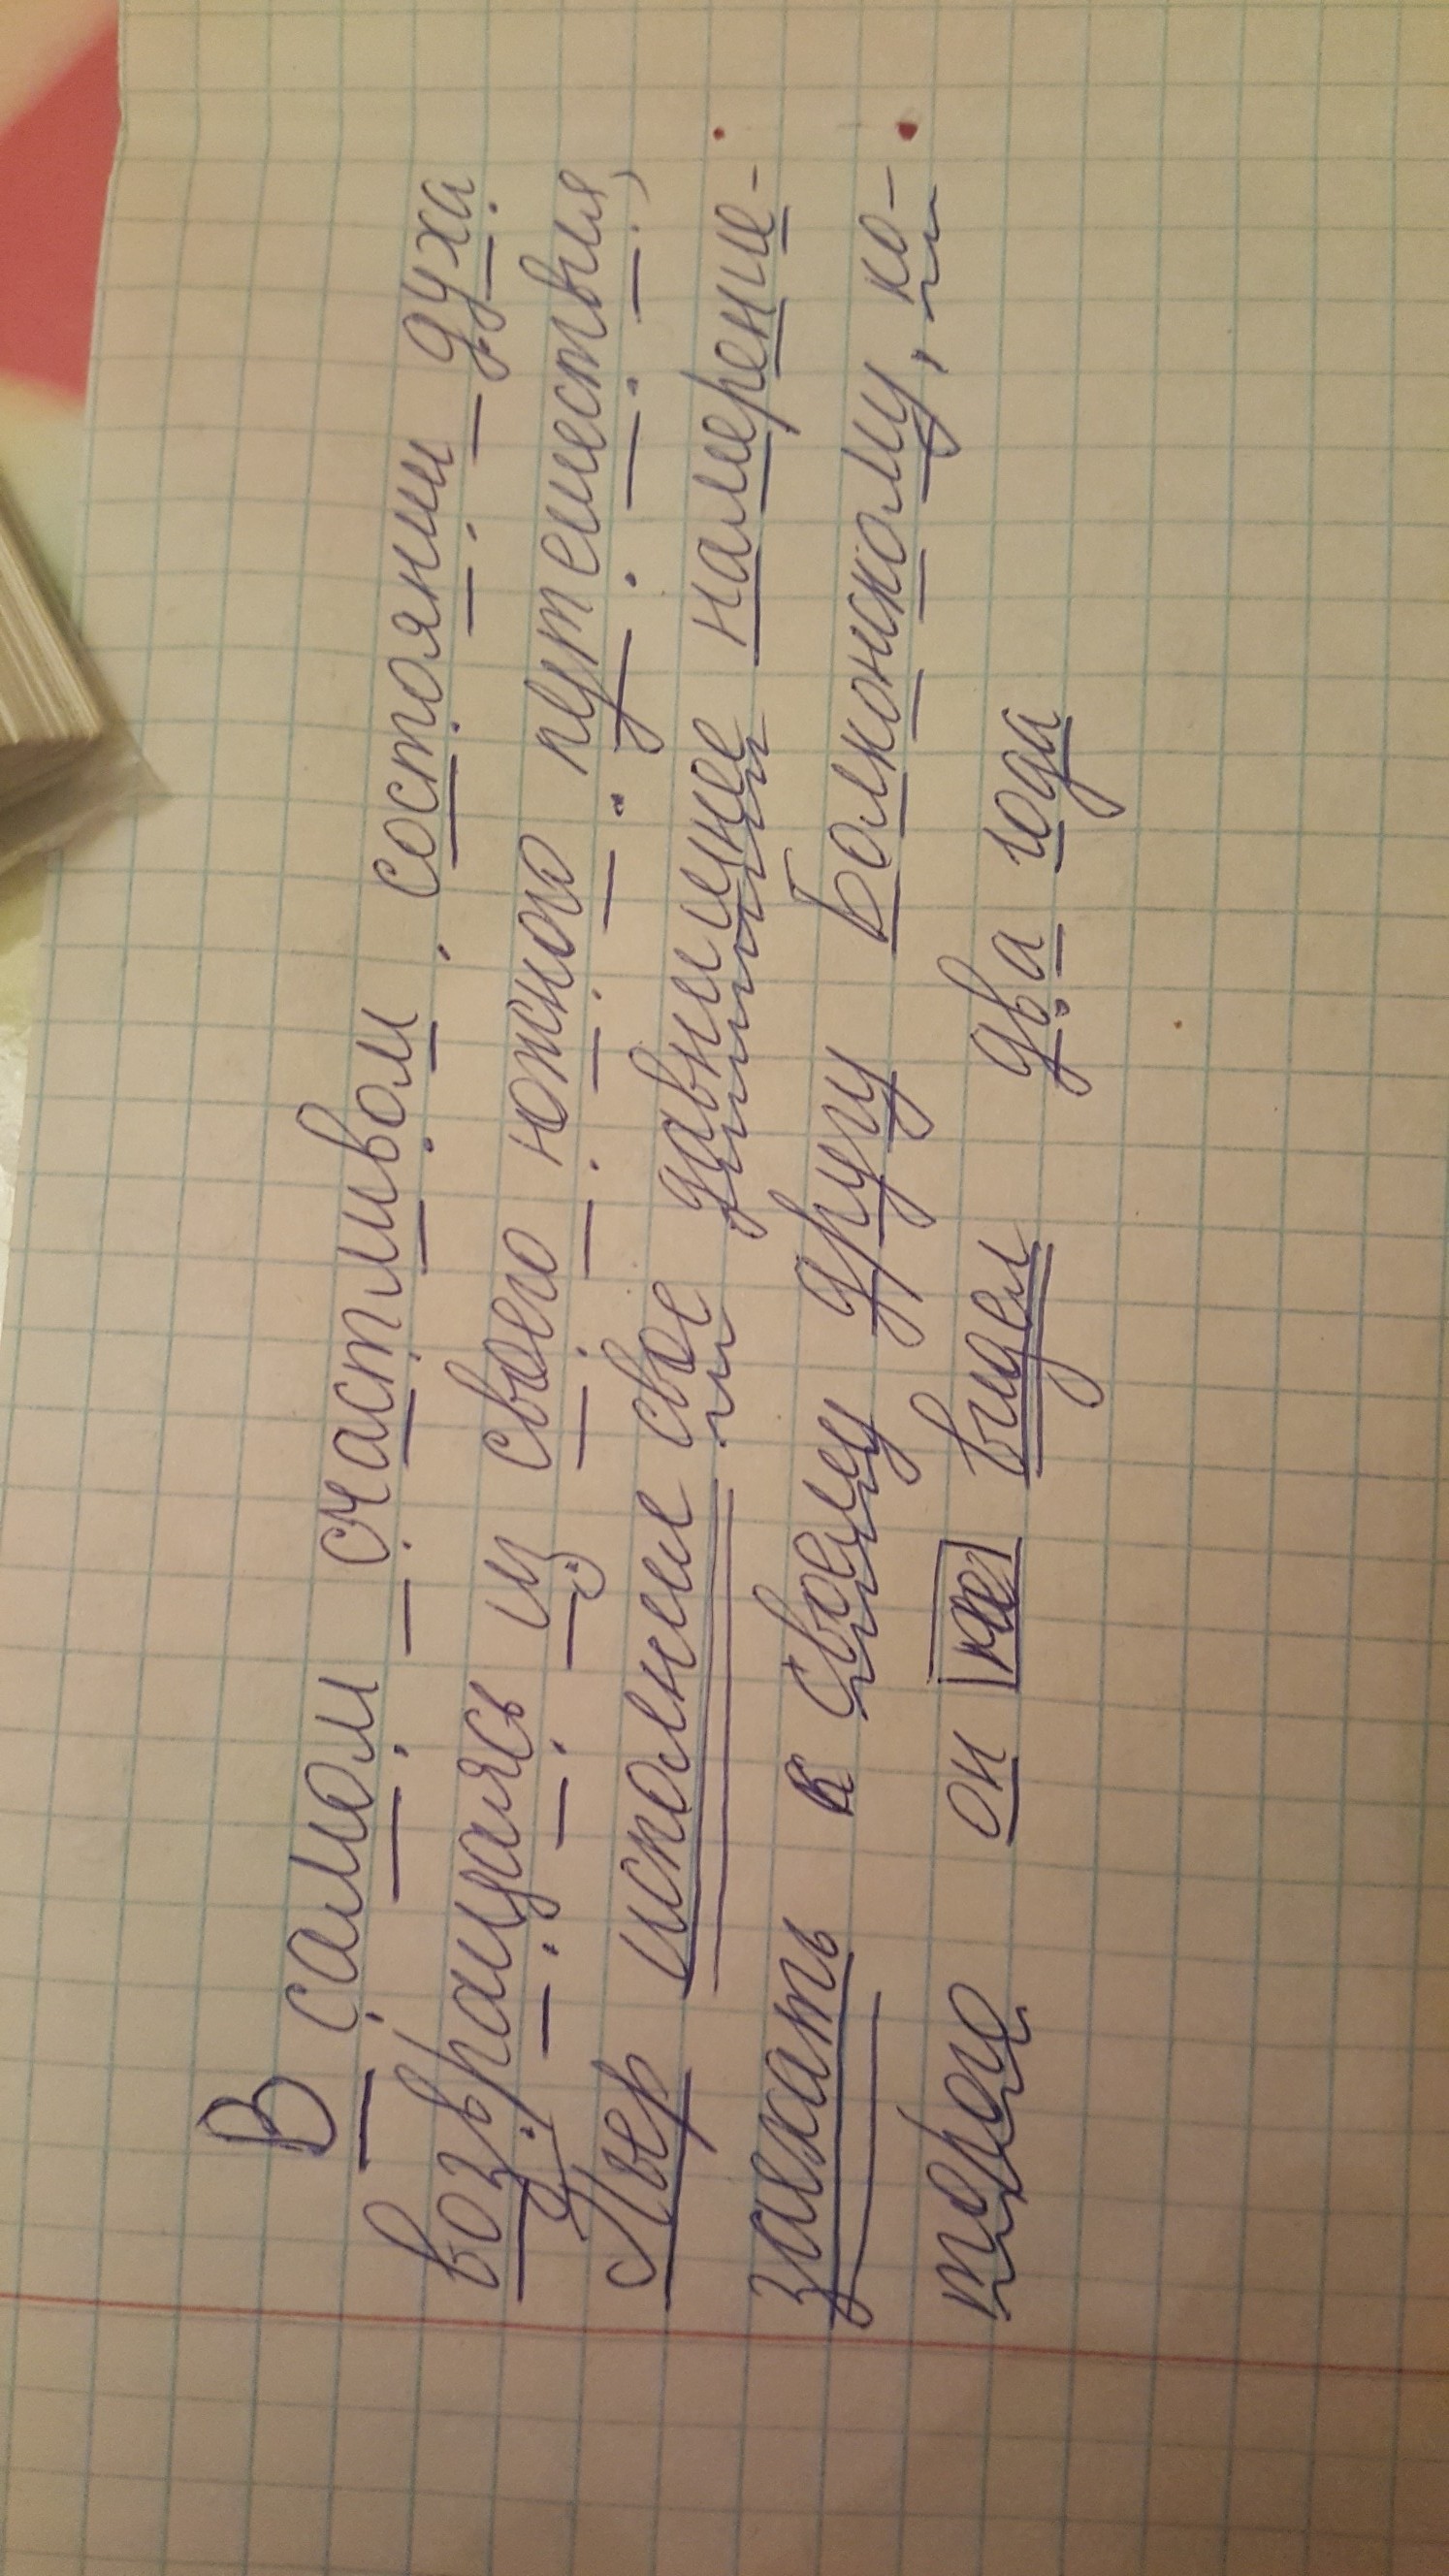 В самом счастливом состоянии духа
возвращаясь из своего южного путешествия,
Пьер исполнил свое давнишнее намерение-
заехать к своему другу Болконскому, ко-
торого он не видел два года